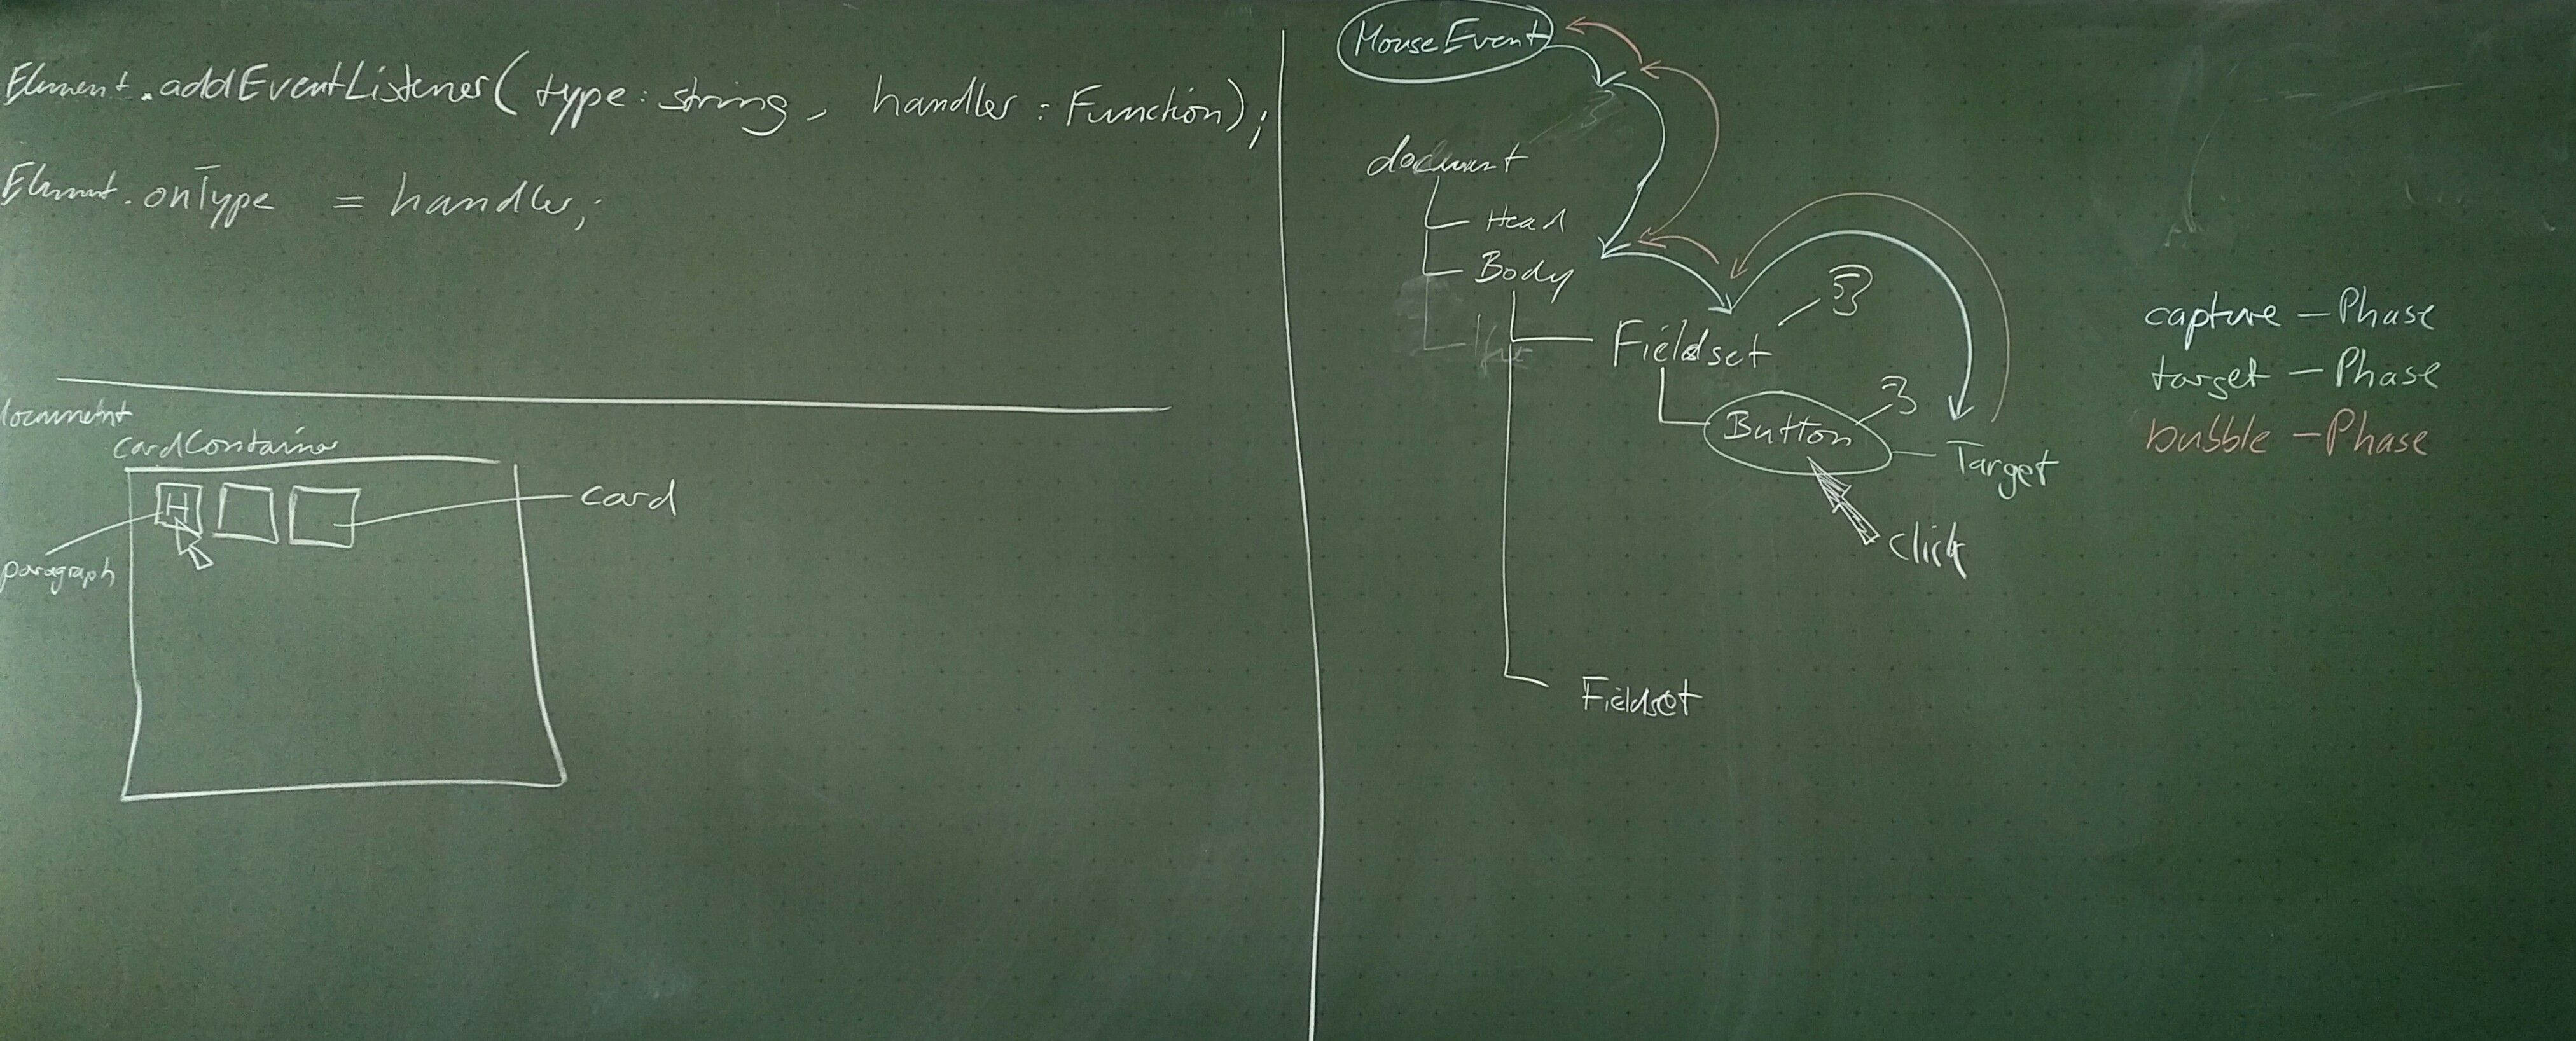 Element.addEventListener(type: string, handler: Function);
Element.onType = handler;
documetnt
cardContainer
H
card
paragraph
MouseEvent
document
Head
Body
Fieldset
Button
Target
click
Fieldset
capture - Phase
target - Phase
bubble - Phase